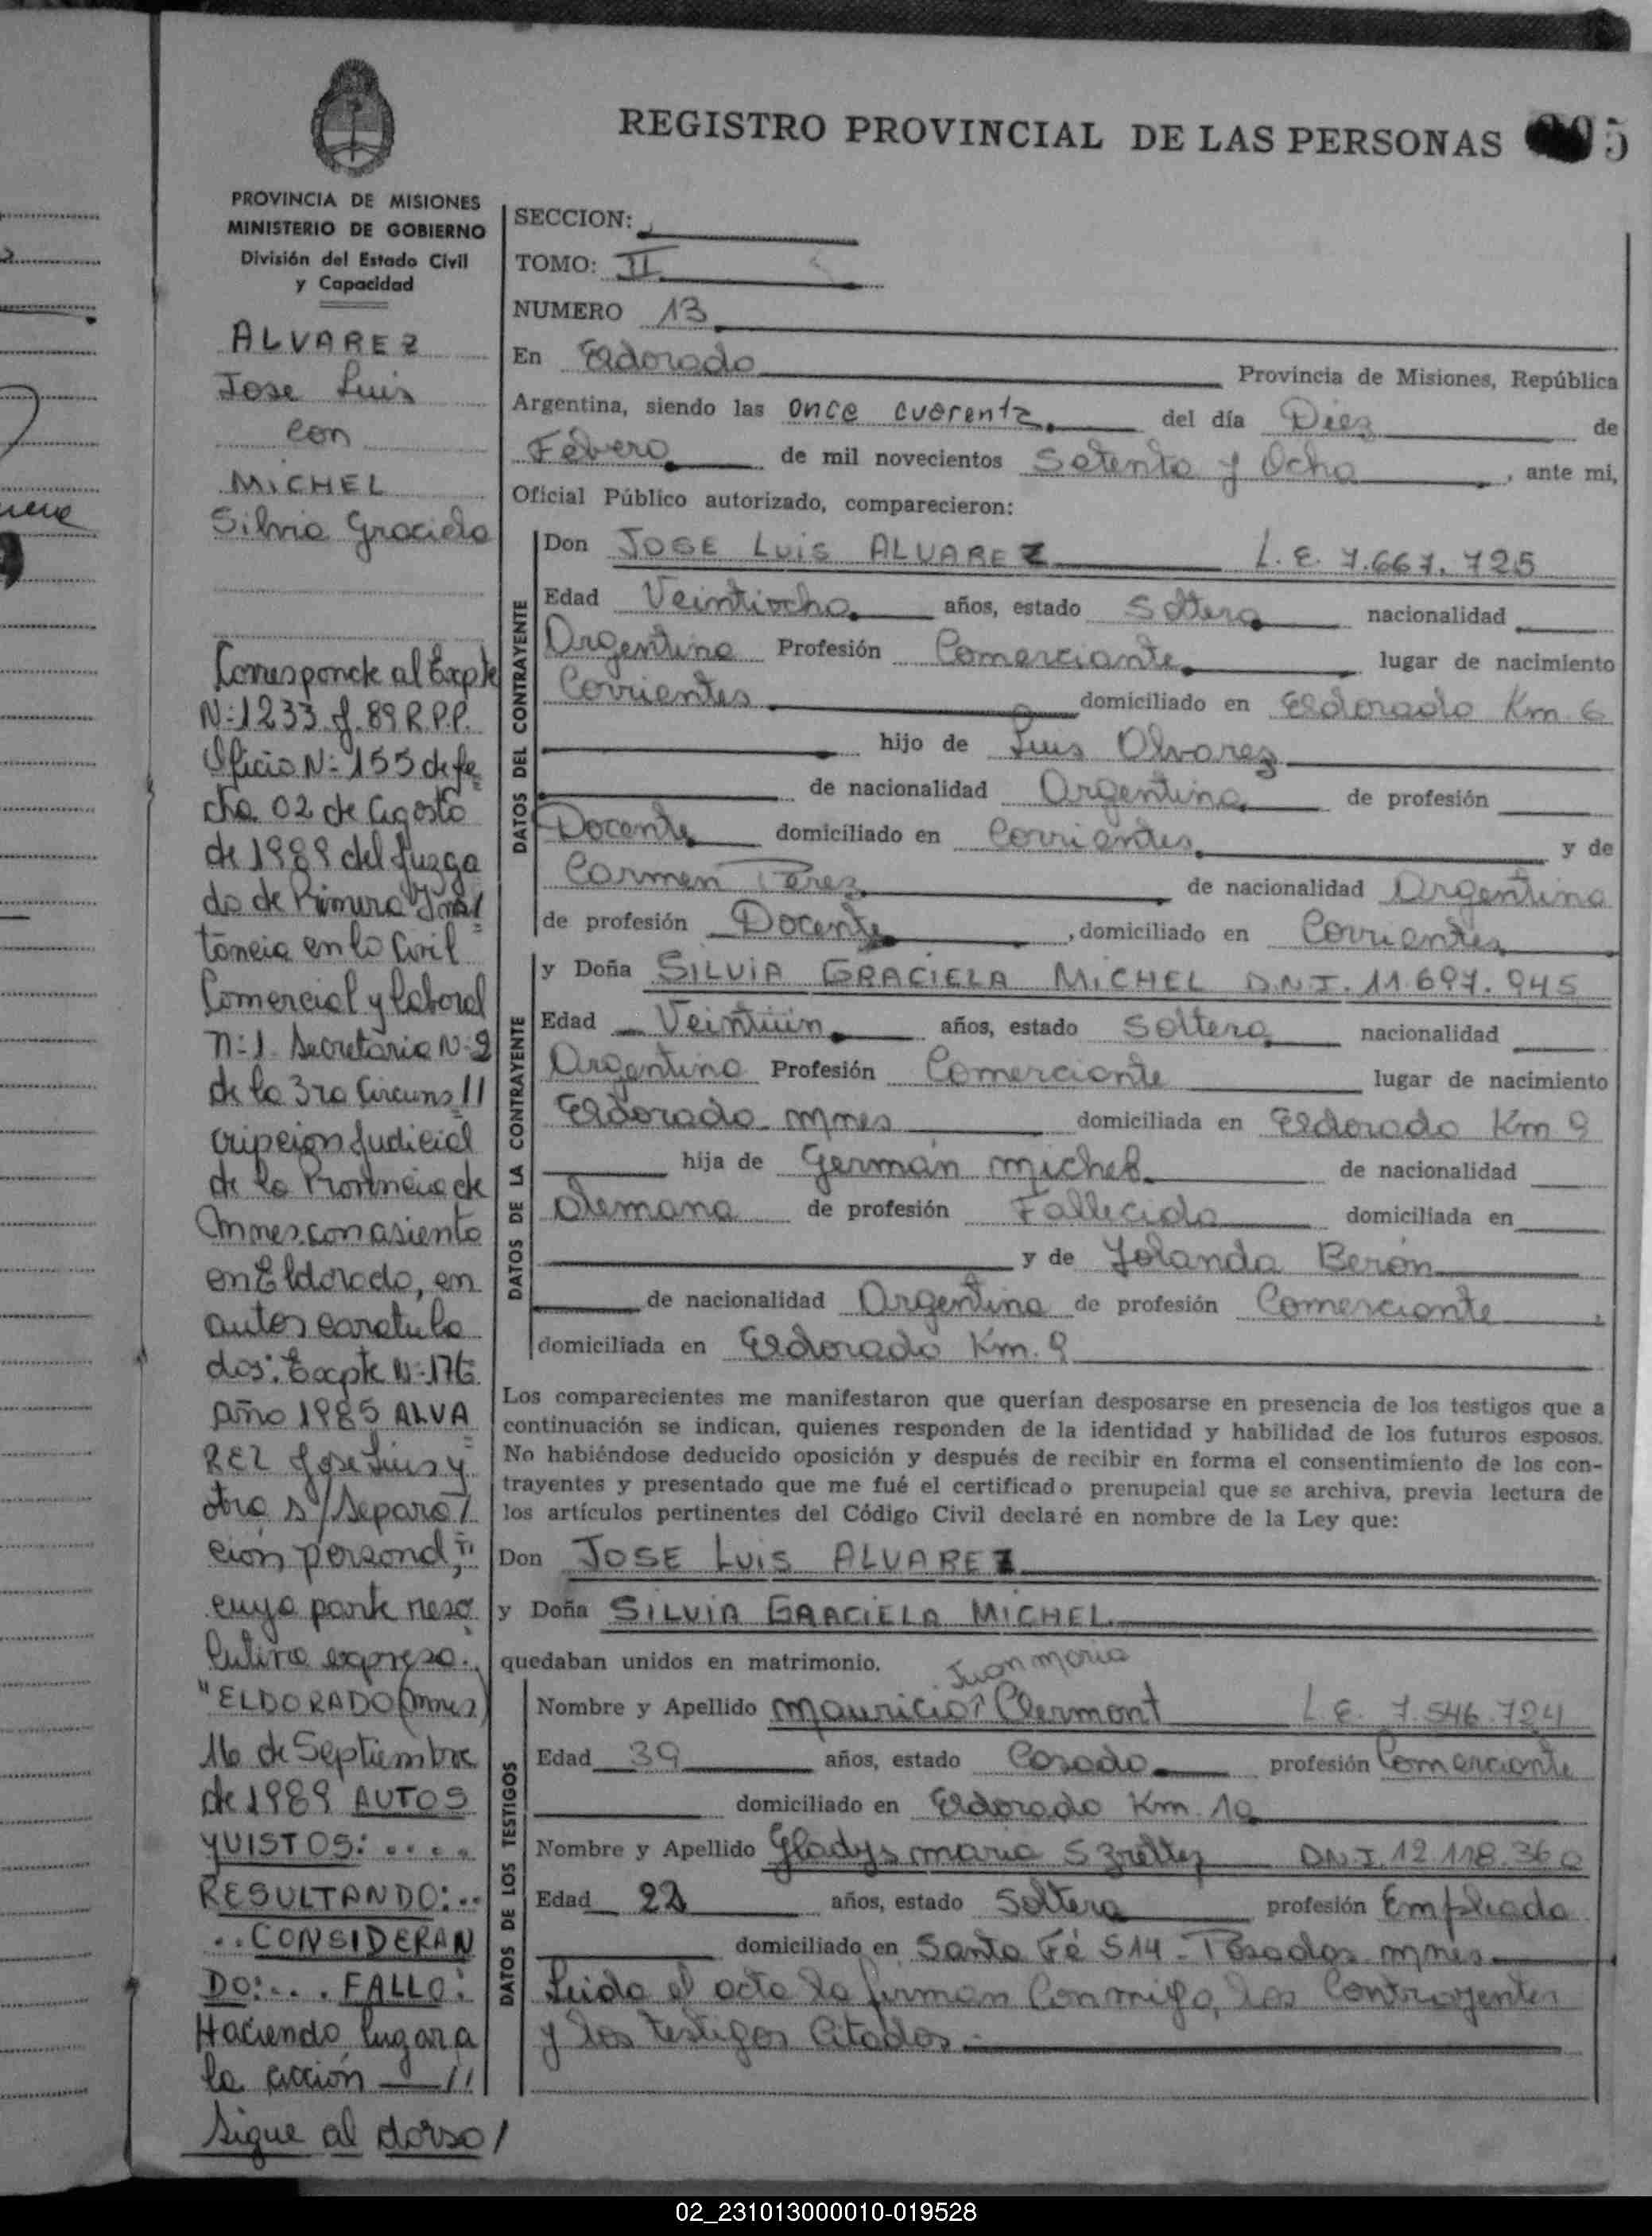 REGISTRO PROVINCIAL DE LAS PERSONAS
5
PROVINCIA DE MISIONES
MINISTERIO DE GOBIERNO
División del Estado Civil
y Capacidad
ALVAREZ
Jose Luis
con
MICHEL
Silvia Graciela
Corresponde al Expte
N:1233 J. 89 R.P.P.
Oficio N: 155 de fe
cha 02 de Agosto
de 1989 del Juzga
do de Primera Ins/
tancia en lo Civil
Comercial y laboral
n:1. Secretaria N:2
de la 3ra Circuns//
cripcion Judicial
de la Provincia de
Mnes. con asiento
en Eldorado, en
autos caratula
dos: Expte N:176
Año 1985 ALVA
REZ Jose Luis y
otra s/Separa/
cion personal,"
cuya parte reso
lutiva expresa:
"ELDORADO (Mnes)
16 de Septiembre
de 1989 AUTOS
Y VISTOS: ....
RESULTANDO: ..
..CONSIDERAN
DO:... FALLO:
Haciendo lugar a
la acción //
Sigue al dorso/
SECCION:
TOMO: II
NUMERO 13
En Eldorado Provincia de Misiones, República
Argentina, siendo las once cuarenta del día Diez de
Febero de mil novecientos Setenta y Ocho, ante mi,
Oficial Público autorizado, comparecieron:
DATOS DEL CONTRAYENTE
Don JOSE LUIS ALVAREZ L.E. 7.667.725
Edad Veintiocho años, estado Soltero nacionalidad
Argentina Profesión Comerciante lugar de nacimiento
Corrientes domiciliado en Eldorado Km 6
hijo de Luis Alvarez
de nacionalidad Argentina de profesión
Docente domiciliado en Corrientes y de
Carmen Perez de nacionalidad Argentina
de profesión Docente, domiciliado en Corrientes
DATOS DE LA CONTRAYENTE
y Doña SILVIA GRACIELA MICHEL D.N.I. 11.697.945
Edad Veintiún años, estado Soltera nacionalidad
Argentina Profesión Comerciante lugar de nacimiento
Eldorado mnes domiciliada en Eldorado Km 9
hija de Germán Michel de nacionalidad
Alemana de profesión Fallecido domiciliada en
y de Yolanda Berón
de nacionalidad Argentina de profesión Comerciante,
domiciliada en Eldorado Km. 9
Los comparecientes me manifestaron que querían desposarse en presencia de los testigos que a
continuación se indican, quienes responden de la identidad y habilidad de los futuros esposos.
No habiéndose deducido oposición y después de recibir en forma el consentimiento de los con-
trayentes y presentado que me fué el certificado prenupcial que se archiva, previa lectura de
los artículos pertinentes del Código Civil declaré en nombre de la Ley que:
Don JOSE LUIS ALVAREZ
y Doña SILVIA GRACIELA MICHEL
quedaban unidos en matrimonio.
Juan Maria
DATOS DE LOS TESTIGOS
Nombre y Apellido Mauricio Clermont L.E. 7.546.724
Edad 39 años, estado Casado profesión Comerciante
domiciliado en Eldorado Km. 10
Nombre y Apellido Gladys Maria D.N.I. 12.118.360
Edad 22 años, estado Soltera profesión Empleada
domiciliado en Santa Fé 514 - Posadas mnes
Leida el acta la firman Conmigo, los Contrayentes
y los testigos Citados.
02_231013000010-019528